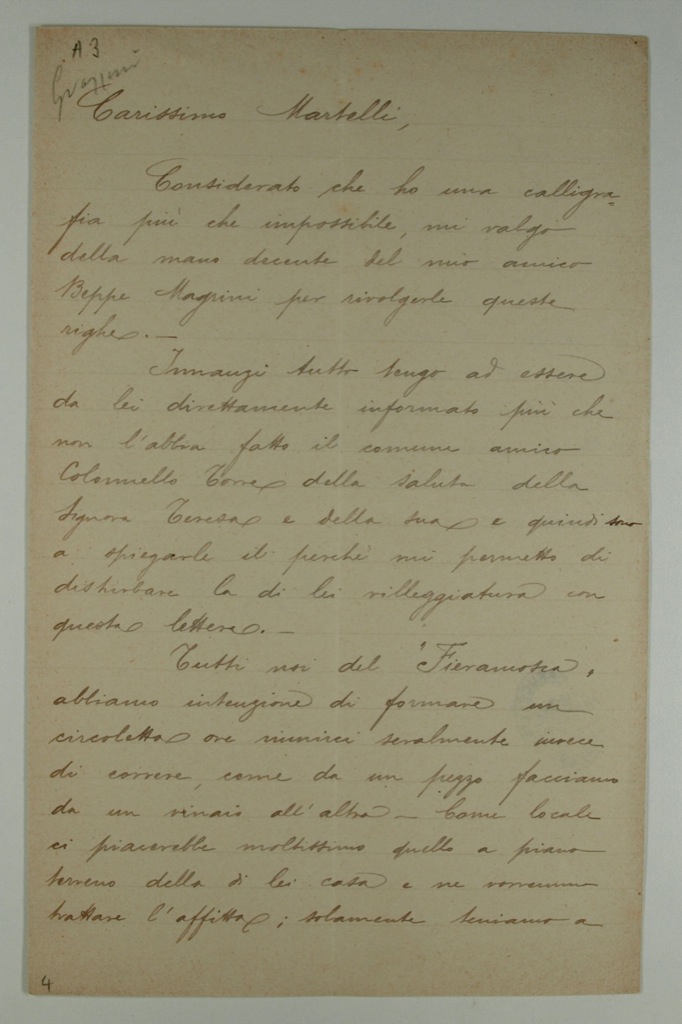 A 3
Carissimo Martelli,
Considerato che ho una calligra=
fia più che impossibile, mi valgo
della mano decente del mio amico
Beppe Magrini per rivolgerle queste
righe. —
Innanzi tutto tengo ad essere
da lei direttamente informato più che
non l'abbia fatto il comune amico
Colonnello Torre della salute della
Signora Teresa e della sua e quindi sono
a spiegarle il perchè mi permetto di
disturbare la di lei villeggiatura con
questa lettera. —
Tutti noi del "Fieramosca"
abbiamo intenzione di formare un
circoletto ove riunirci seralmente invece
di correre, come da un pezzo facciamo
da un vinaio all'altro — Come locale
ci piacerebbe moltissimo quello a piano
terreno della di lei casa e ne vorremmo
trattare l'affitto; solamente teniamo a
4